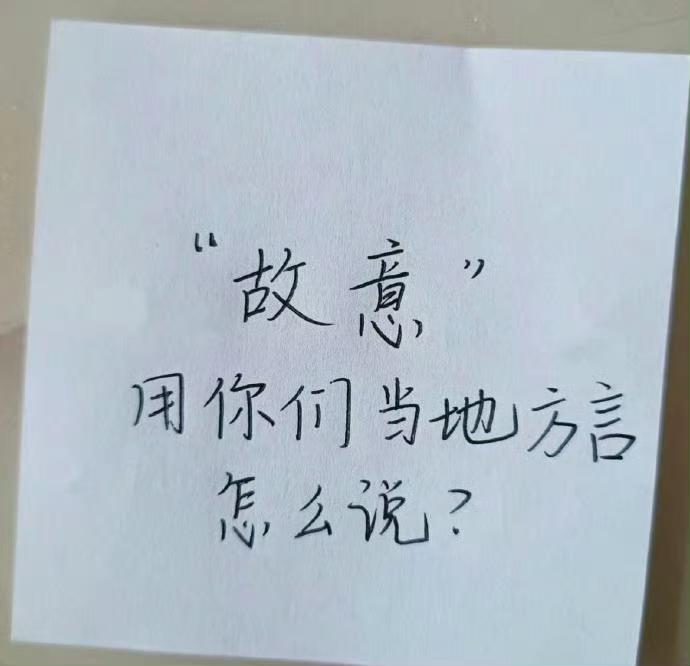 “故意”
用你们当地方言
怎么说？